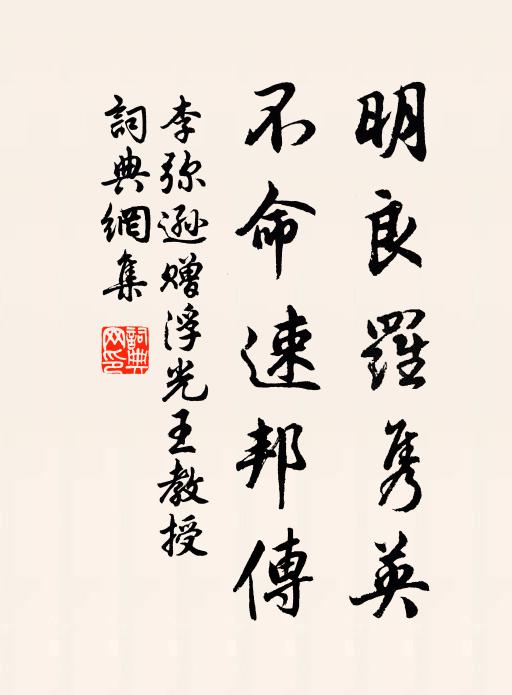 明良羅隽英
不命速邦傳
李弥遜赠浮光王教授
詞典網集
詞典网印